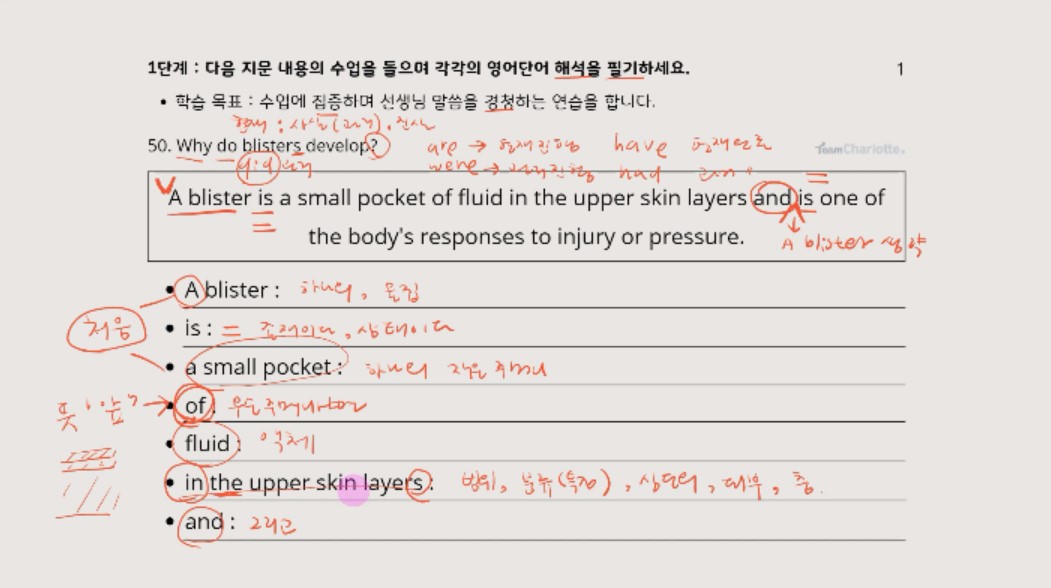 1단계 : 다음 지문 내용의 수업을 들으며 각각의 영어단어 해석을 필기하세요. 1
• 학습 목표 : 수업에 집중하며 선생님 말씀을 경청하는 연습을 합니다.
현재 : 사실(과거),
50. Why do blisters develop? are → 현재진행 have 현재완료
were → 과거진행 had
TeamCharlotte.
A blister is a small pocket of fluid in the upper skin layers and is one of
the body's responses to injury or pressure.
A blister 생략
• A blister : 하나의, 물집
• is : = 존재이다, 상태이다
처음
• a small pocket : 하나의 작은 주머니
• of :
뜻 "앞"
• fluid : 액체
• in the upper skin layers : 범위, 분류(특정), 상단의, 피부, 층.
• and : 그리고